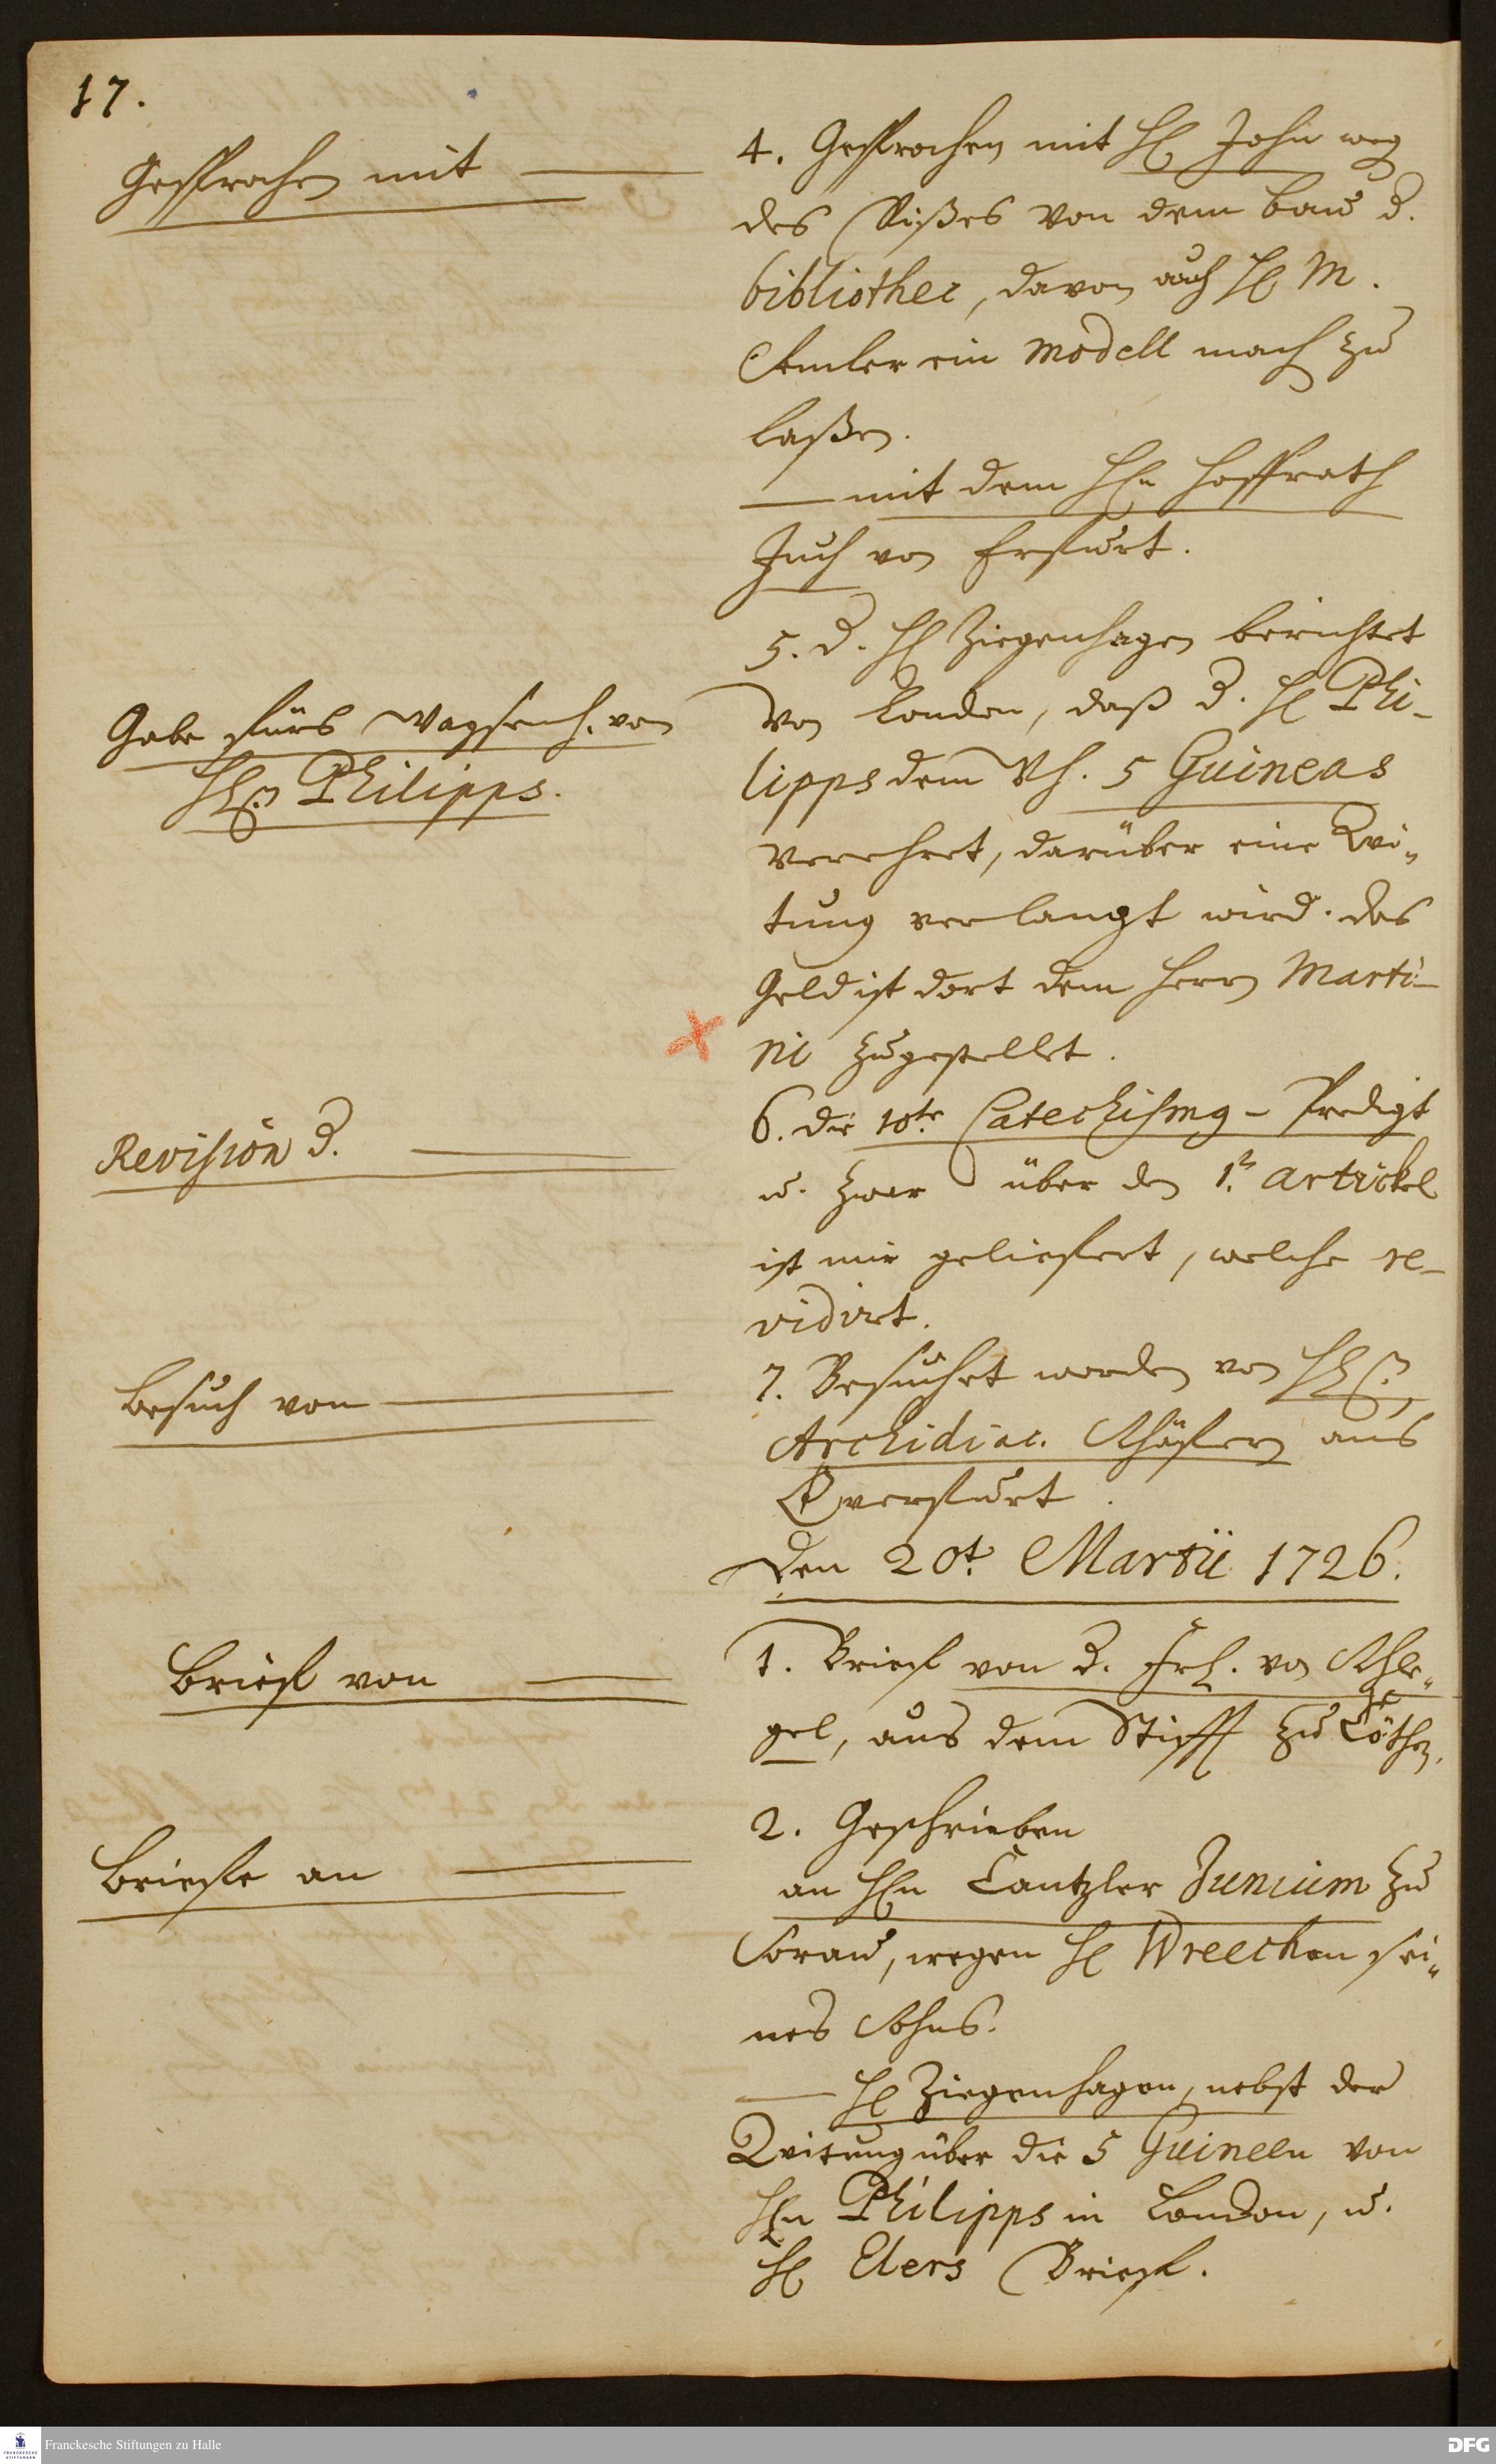 17.
Gesprochen mit
4. Gesprochen mit H. John weg
des Rißes von dem bau d.
bibliothec, davon auch H. M.
Semler ein modell mach zu
laßen.
— mit dem Hn Hoffrath
Juch von Erfurt.
5. d. H. Ziegenhagen berichtet
Gabe fürs Waysenh. von
Hn Philipps.
von London, daß d. H. Phi-
lipps dem Wh. 5 Guineas
verehret, darüber eine Qvi-
tung verlangt wird. das
Geld ist dort dem Herrn Marti-
ni zugestellet.
Revision d.
6. die 10te Catechismq - Predigt
u. zwar über den 1. Artickel
ist mir geliefert, welche re-
vidirt.
Besuch von
7. Besuchet worden von H.
Archidiac. Schäfern aus
Qverfurt.
den 20t. Martii 1726.
Brief von
1. Brief von d. Frl. von Schle-
gel, aus dem Stifft zu Cöthen.
2. Geschrieben
Briefe an
an Hn Cantzler Junium zu
Sorau, wegen H. Wreechen sei-
nes Sohns.
— H. Ziegenhagen, nebst der
Qvitung über die 5 Guineen von
Hn Philipps in London, u.
H. Elers Brief.
Franckesche Stiftungen zu Halle
FRANCKESCHE STIFTUNGEN
DFG